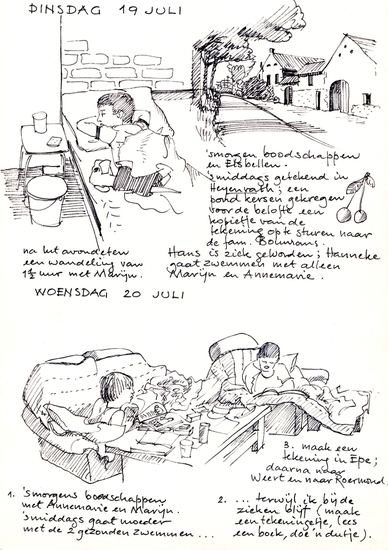 DINSDAG 19 JULI
'smorgen boodschappen
en Etsbellen.
'smiddags getekend in
Heyenrath; een
pond kersen gekregen
voor de belofte een
kopietje van de
tekening op te sturen naar
de fam. Bolmans.
na het avondeten
een wandeling van
1½ uur met Marijn.
Hans is ziek geworden; Hanneke
gaat zwemmen met alleen
Marijn en Annemarie.
WOENSDAG 20 JULI
1. 'smorgens boodschappen
met Annemarie en Marijn.
'smiddags gaat moeder
met de 2 gezonden zwemmen ...
2. ... terwijl ik bij de
zieken blijf (maak
een tekeningetje, lees
een boek, doe 'n dutje).
3. maak een
tekening in Epe;
daarna naar
Weert en naar Roermond.